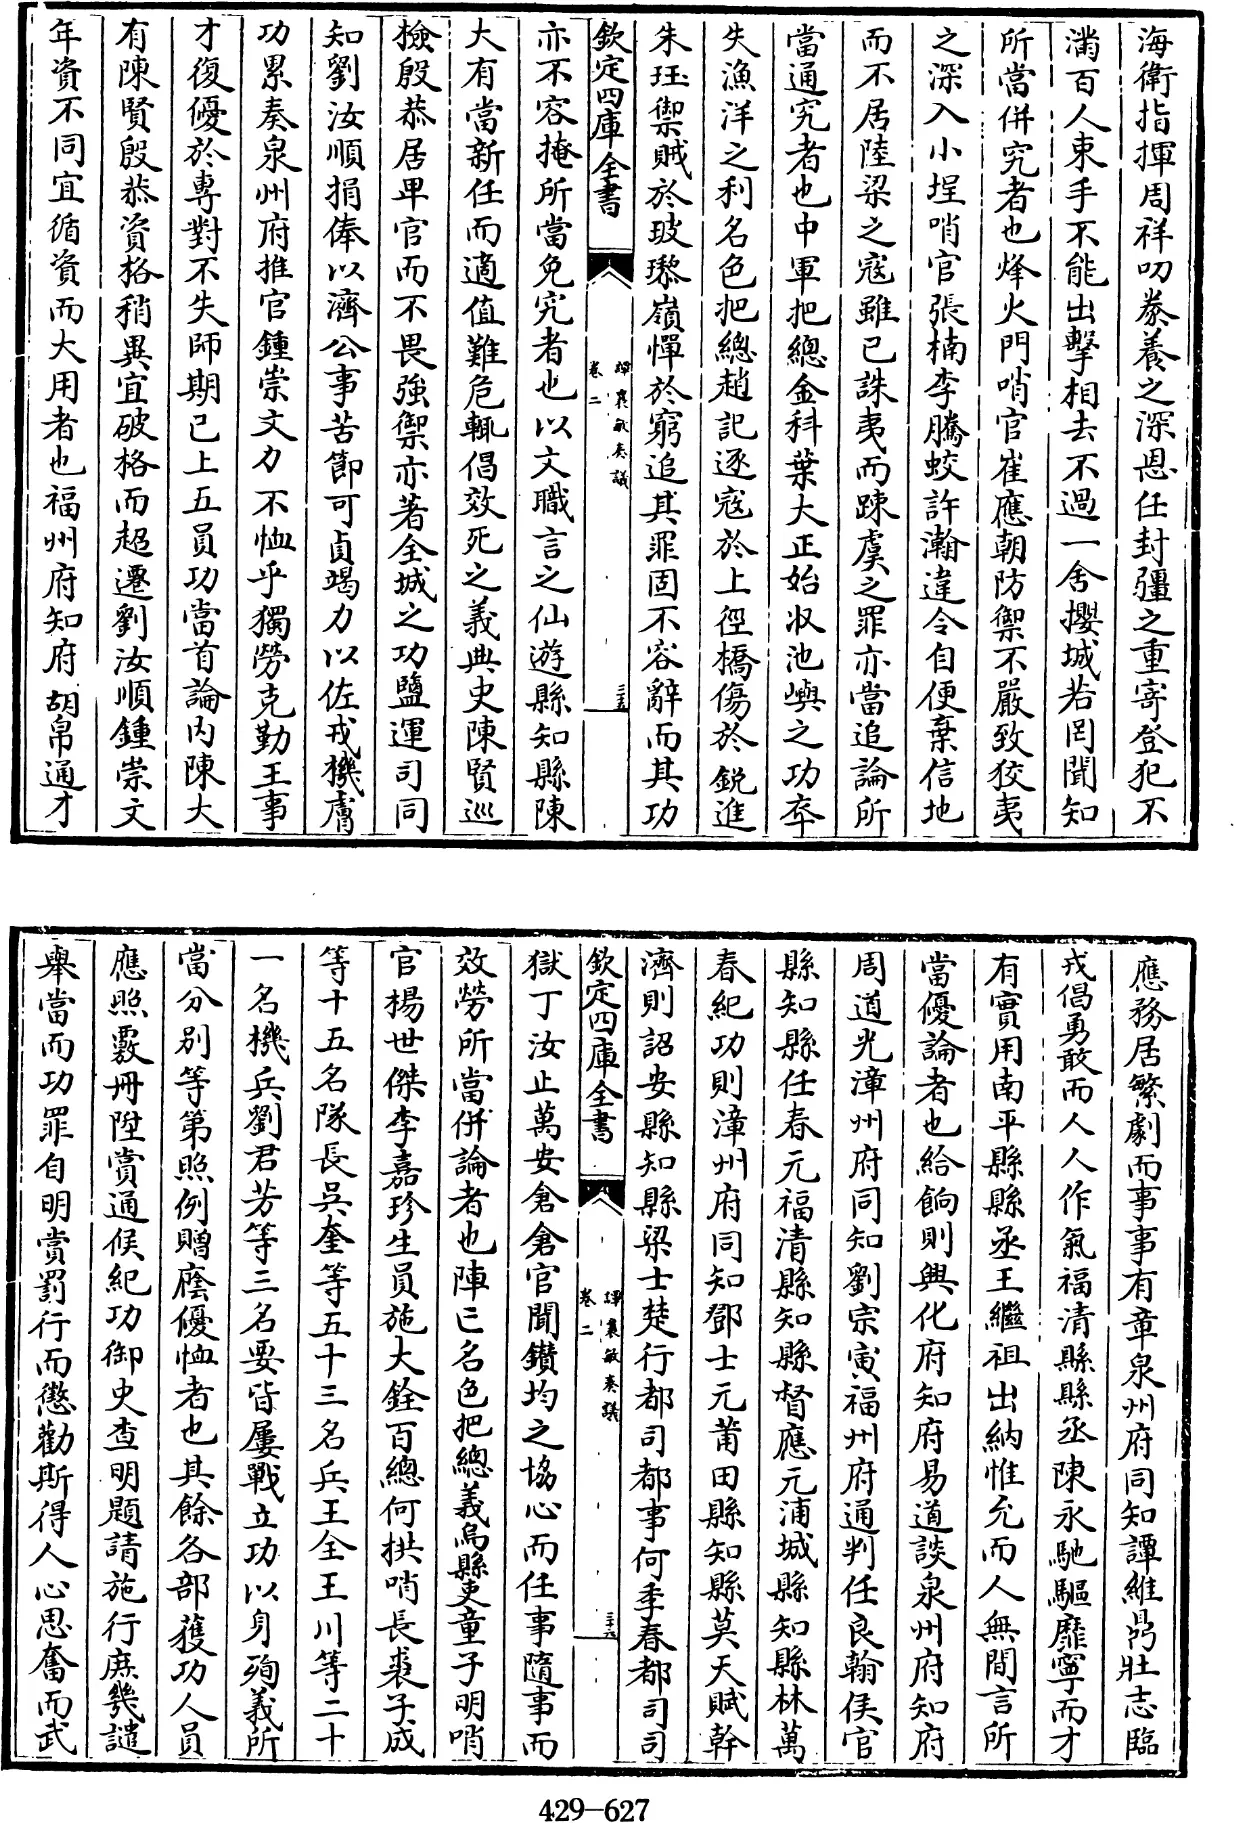 海衛指揮周祥叨豢養之深恩任封疆之重寄登犯不
滿百人束手不能出擊相去不過一舍攖城若罔聞知
所當併究者也烽火門哨官崔應朝防禦不嚴致狡夷
之深入小埕哨官張楠李騰蛟許瀚違令自便棄信地
而不居陸梁之寇雖已誅夷而踈虞之罪亦當追論所
當通究者也中軍把總金科葉大正始收池嶼之功卒
失漁洋之利名色把總趙記逐寇於上徑橋傷於銳進
朱珏禦賊於玻瓈嶺憚於窮追其罪固不容辭而其功
欽定四庫全書
譚襄敏奏議
卷二
三十五
亦不容掩所當免究者也以文職言之仙遊縣知縣陳
大有當新任而適值難危輒倡效死之義典史陳賢巡
檢殷恭居卑官而不畏強禦亦著全城之功鹽運司同
知劉汝順捐俸以濟公事苦節可貞竭力以佐戎機膚
功累奏泉州府推官鍾崇文力不恤乎獨勞克勤王事
才復優於專對不失師期已上五員功當首論內陳大
有陳賢殷恭資格稍異宜破格而超遷劉汝順鍾崇文
年資不同宜循資而大用者也福州府知府胡帛通才
應務居繁劇而事事有章泉州府同知譚維鼎壯志臨
戎倡勇敢而人人作氣福清縣縣丞陳永馳驅靡寧而才
有實用南平縣縣丞王繼祖出納惟允而人無間言所
當優論者也給餉則興化府知府易道談泉州府知府
周道光漳州府同知劉宗寅福州府通判任良翰侯官
縣知縣任春元福清縣知縣督應元浦城縣知縣林萬
春紀功則漳州府同知鄧士元莆田縣知縣莫天賦幹
濟則詔安縣知縣梁士楚行都司都事何季春都司司
欽定四庫全書
譚襄敏奏議
卷二
三十六
獄丁汝止萬安倉倉官聞鑽均之協心而任事隨事而
效勞所當併論者也陣亡名色把總義烏縣吏童子明哨
官楊世傑李嘉珍生員施大銓百總何拱哨長裘子成
等十五名隊長吳奎等五十三名兵王全王川等二十
一名機兵劉君芳等三名要皆屢戰立功以身殉義所
當分別等第照例贈廕優恤者也其餘各部獲功人員
應照覈冊陞賞通候紀功御史查明題請施行庶幾譴
舉當而功罪自明賞罰行而懲勸斯得人心思奮而武
429—627